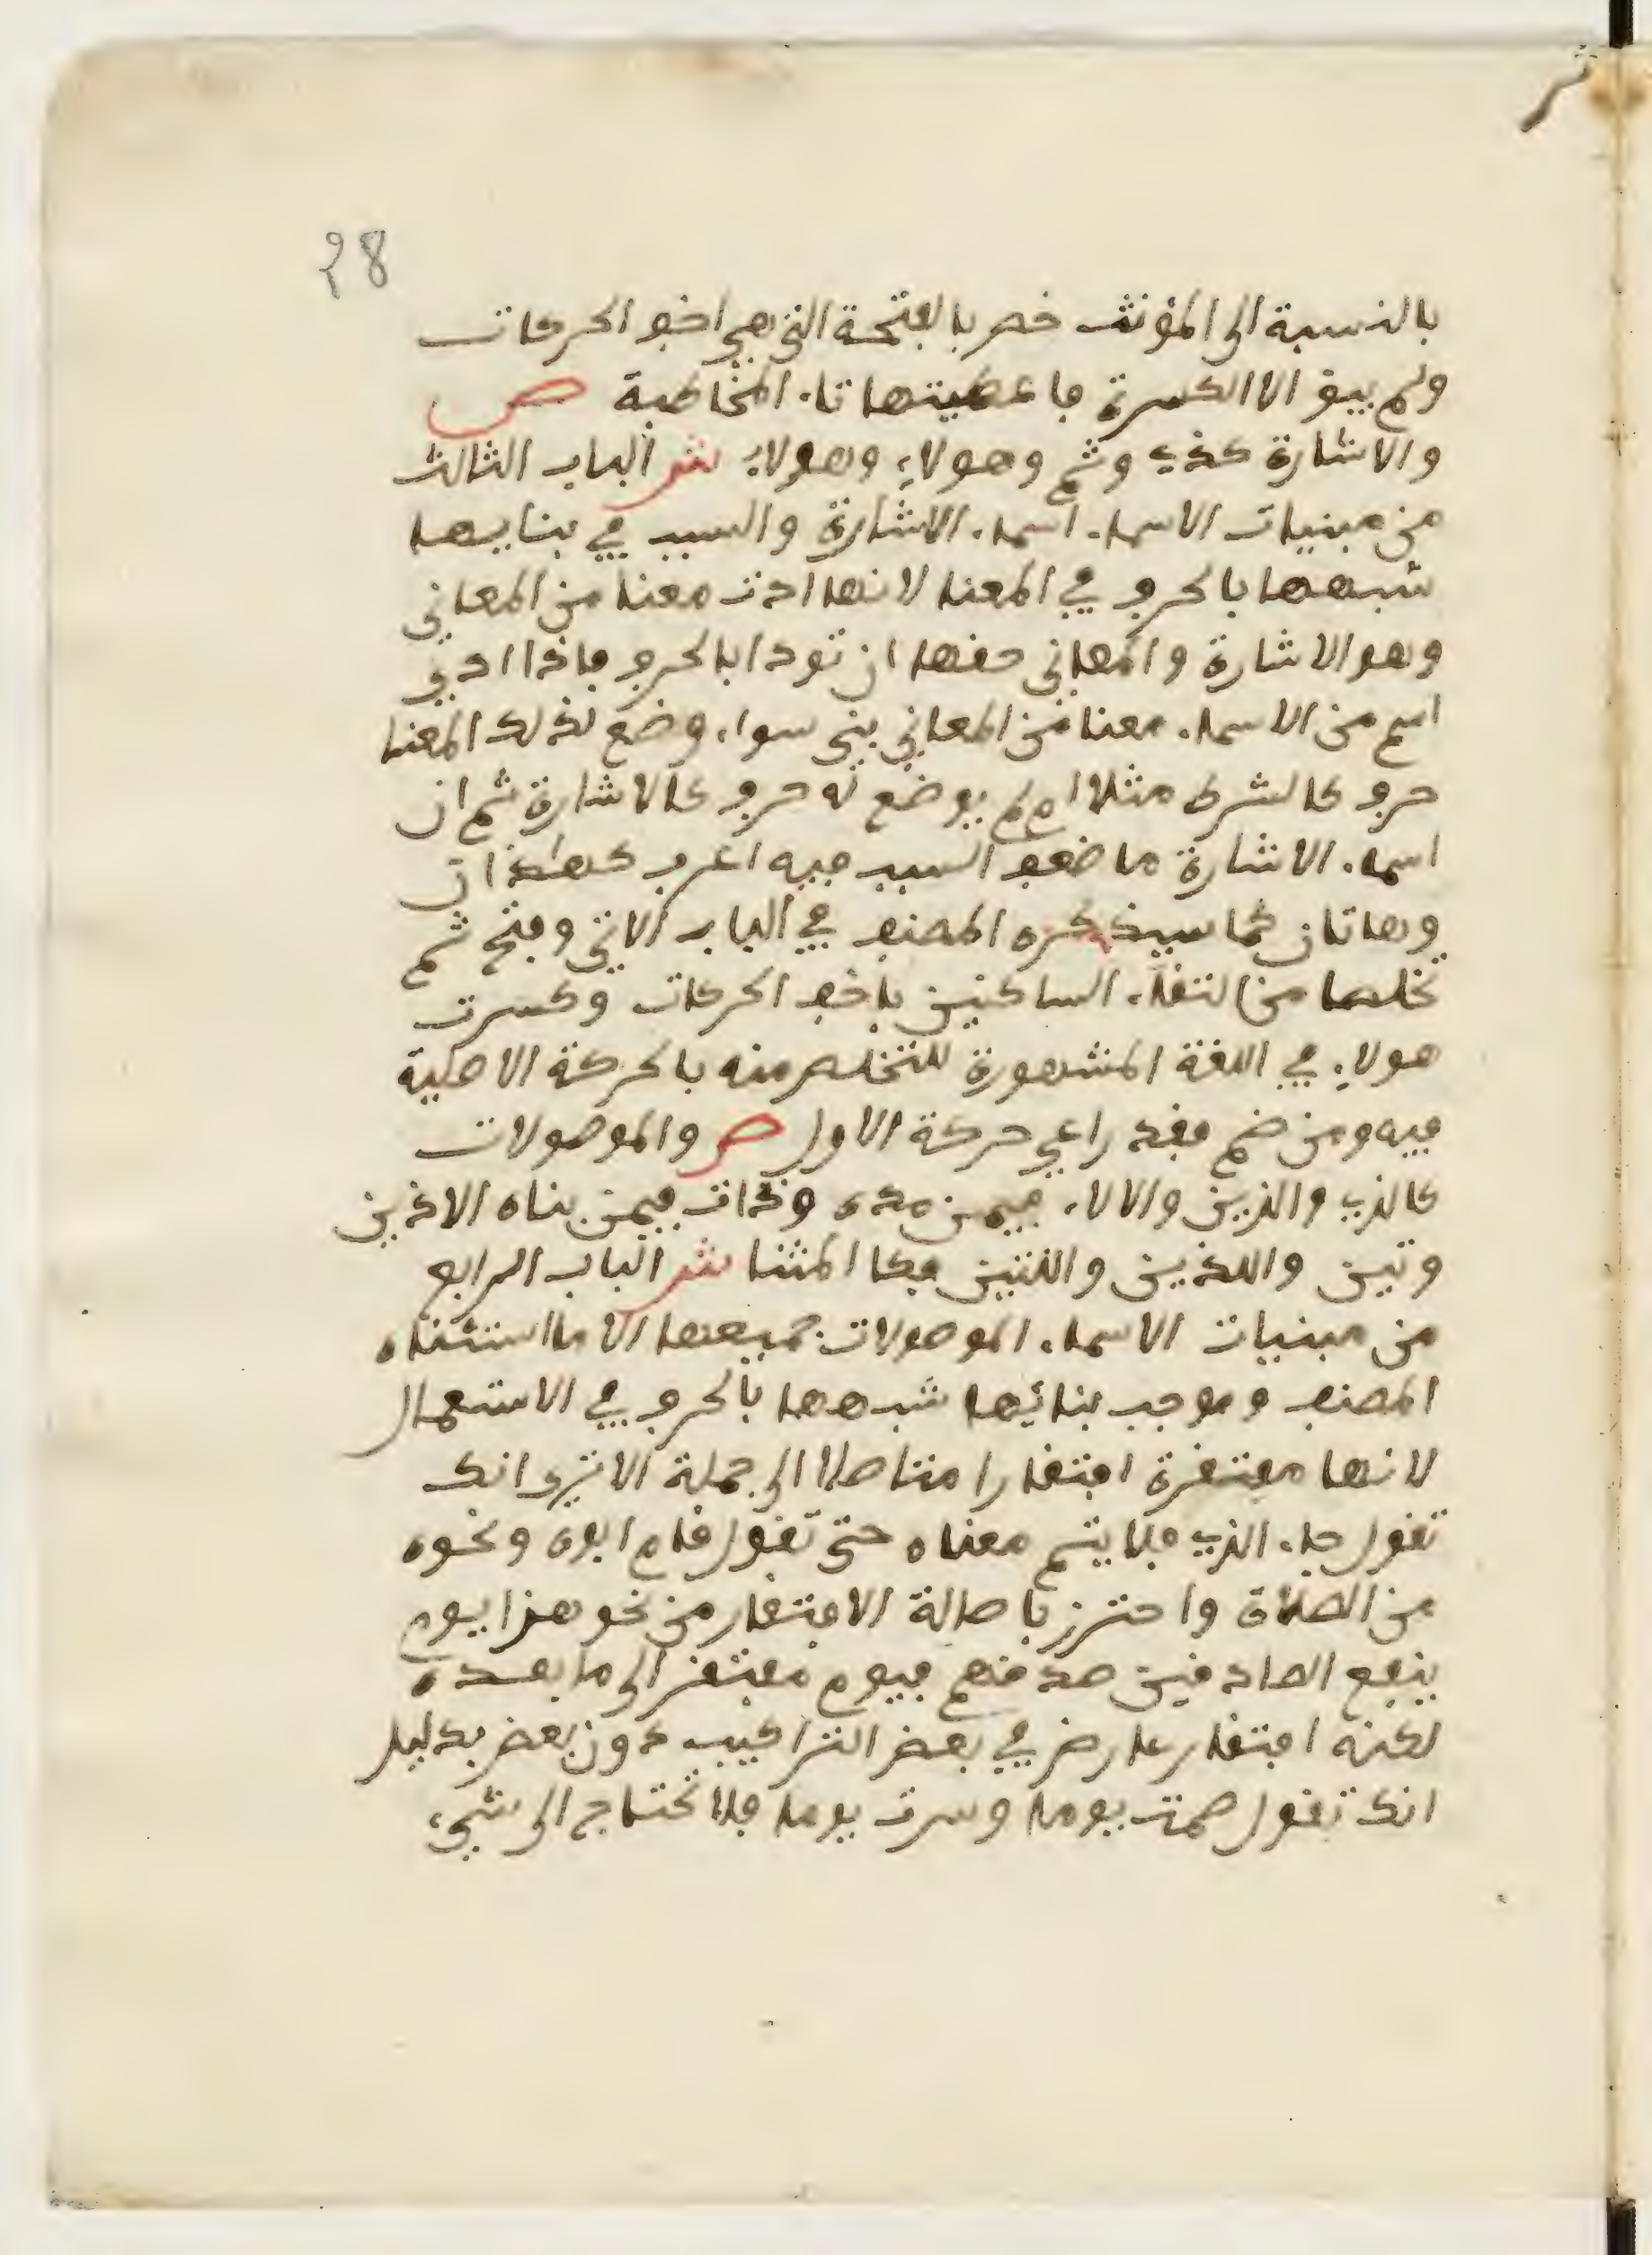 28
بالنسبة الى المؤنث خص بالفتحة التي هي اخف الحركات
ولم يبق الا الكسرة فاعطيتها تاء المخاطبة ص
والاشارة كذي وثم وهولاء وهولاء ش الباب الثالث
من مبنيات الاسماء اسماء الاشارة والسبب في بنايها
شبهها بالحرف في المعنا لانها ادت معنا من المعاني
وهو الاشارة والمعاني حقها ان تودا بالحرف فاذا ادي
اسم من الاسماء معنا من المعاني بني سواء وضع لذلك المعنا
حرف كالشرط مثلا ام لم يوضع له حرف كالاشارة ثم ان
اسماء الاشارة ما ضعف السبب فيه اعرب كهاذان
وهاتان كما سيذكره المصنف في الباب الاتي وفتح ثم
تخلصا من التقاء الساكنين باخف الحركات وكسرت
هولاء في اللغة المشهورة للتخلص منه بالحركة الاصلية
فيه ومن ضم فقد راعي حركة الاول ص والموصولات
كالذي والذين والالاء فيمن مده وذات فيمن بناه الاذين
وتين واللذين واللتين فكالمثنا ش الباب الرابع
من مبنيات الاسماء الموصولات جميعها الا ما استثناه
المصنف وموجب بنائها شبهها بالحرف في الاستعمال
لانها مفتقرة افتقارا متاصلا الى جملة الا ترى انك
تقول جاء الذي فلا يتم معناه حتى تقول قام ابوه ونحوه
من الصلاة واحترز باصالة الافتقار من نحو هذا يوم
ينفع الصادقين صدقهم فيوم مفتقر الى ما بعده
لكنه افتقار عارض في بعض التراكيب دون بعض بدليل
انك تقول صمت يوما وسرت يوما فلا تحتاج الى شيء